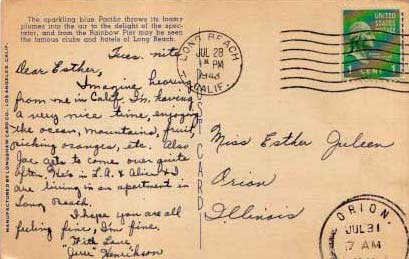 The sparkling blue Pacific throws its foamy
plumes into the air to the delight of the spec-
tator, and from the Rainbow Pier may be seen
the famous clubs and hotels of Long Beach.
Tues. nite
Dear Esther,
Imagine hearing
from me in Calif. I'm having
a very nice time, enjoying
the ocean, mountains, fruit,
picking oranges, etc. Also
Joe gets to come over quite
often. He's in L.A. & Alice & I
are living in an apartment in
Long Beach.
I hope you are all
feeling fine, I'm fine.
With Love
"Jeri" Henrikson
MANUFACTURED BY LONGSHAW CARD CO., LOS ANGELES, CALIF.
POST CARD
LONG BEACH
JUL 28
PM
1943
CALIF.
UNITED
STATES
1
CENT
Miss Esther Juleen
Orion
Illinois
ORION.
JUL 31
7 AM